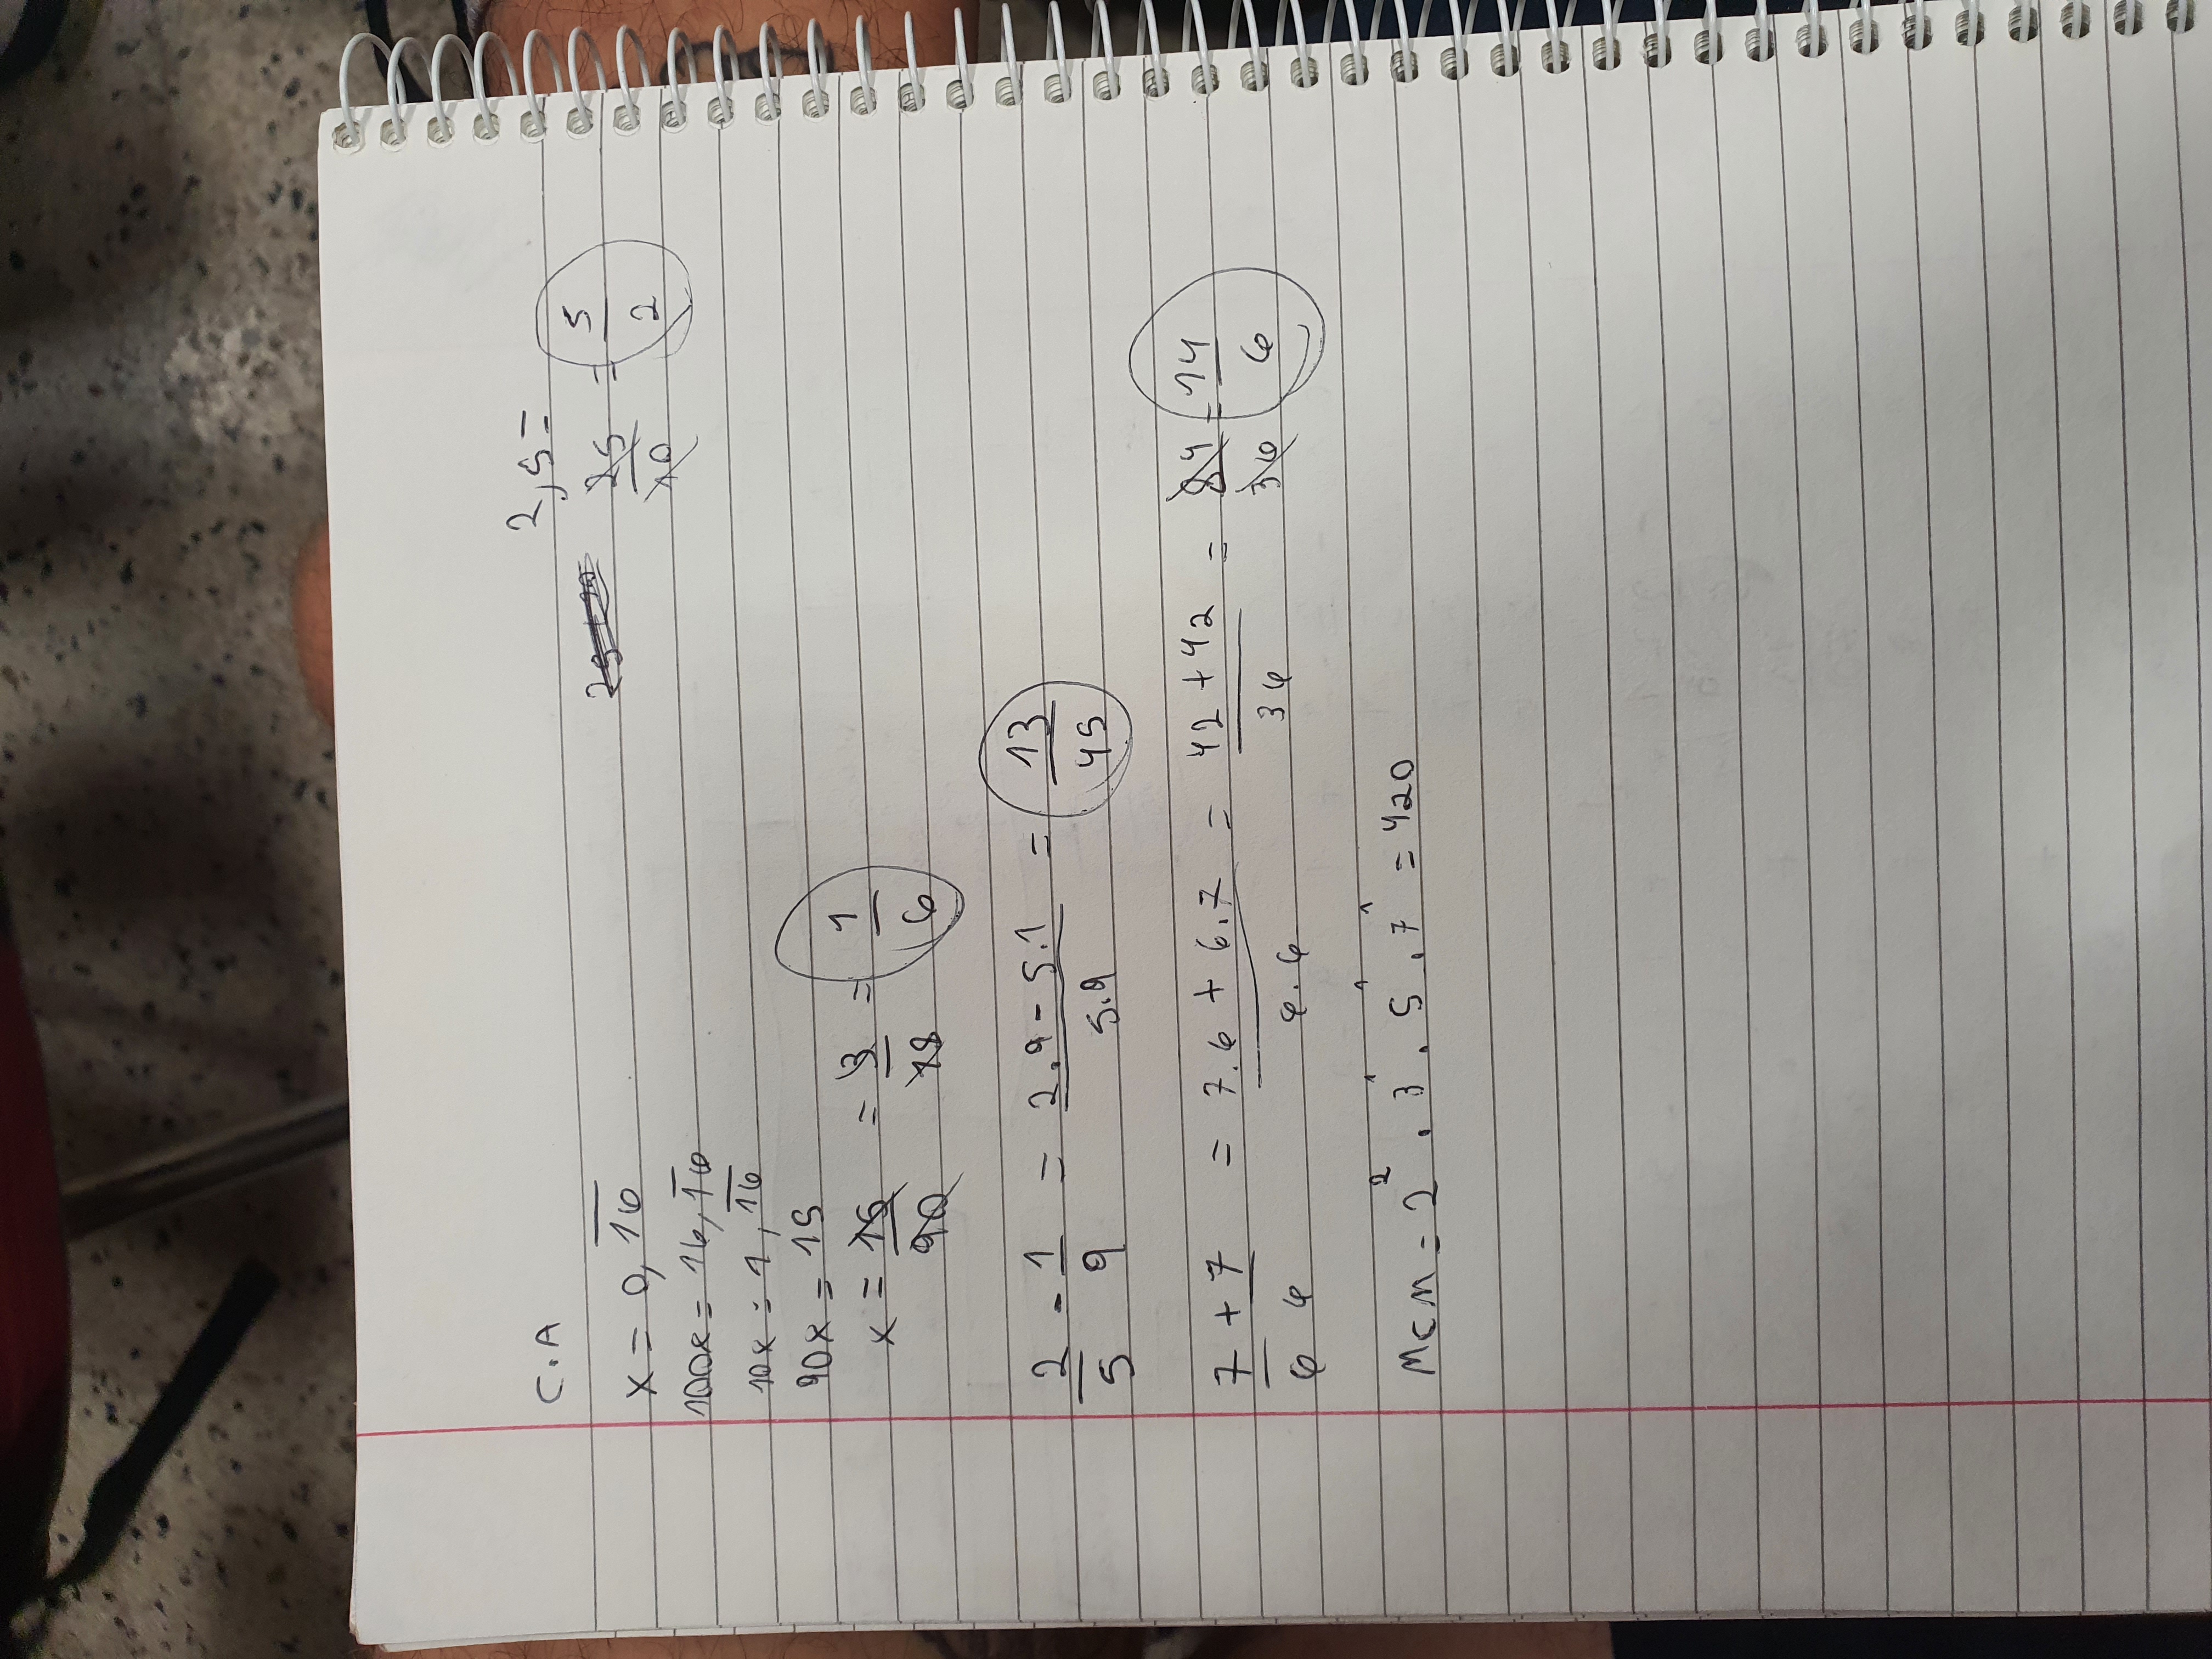 C.A
2,5=
25/10 = 5/2
x = 0,1̅6̅
100x = 16,1̅6̅
10x = 1,1̅6̅
90x = 15
x = 15/90 = 3/18 = 1/6
2/5 - 1/9 = 2.9 - 5.1/5.9 = 13/45
7/6 + 7/6 = 7.6 + 6.7/6.6 = 42 + 42/36 = 84/36 = 14/6
MCM = 2² . 3¹ . 5¹ . 7¹ = 420